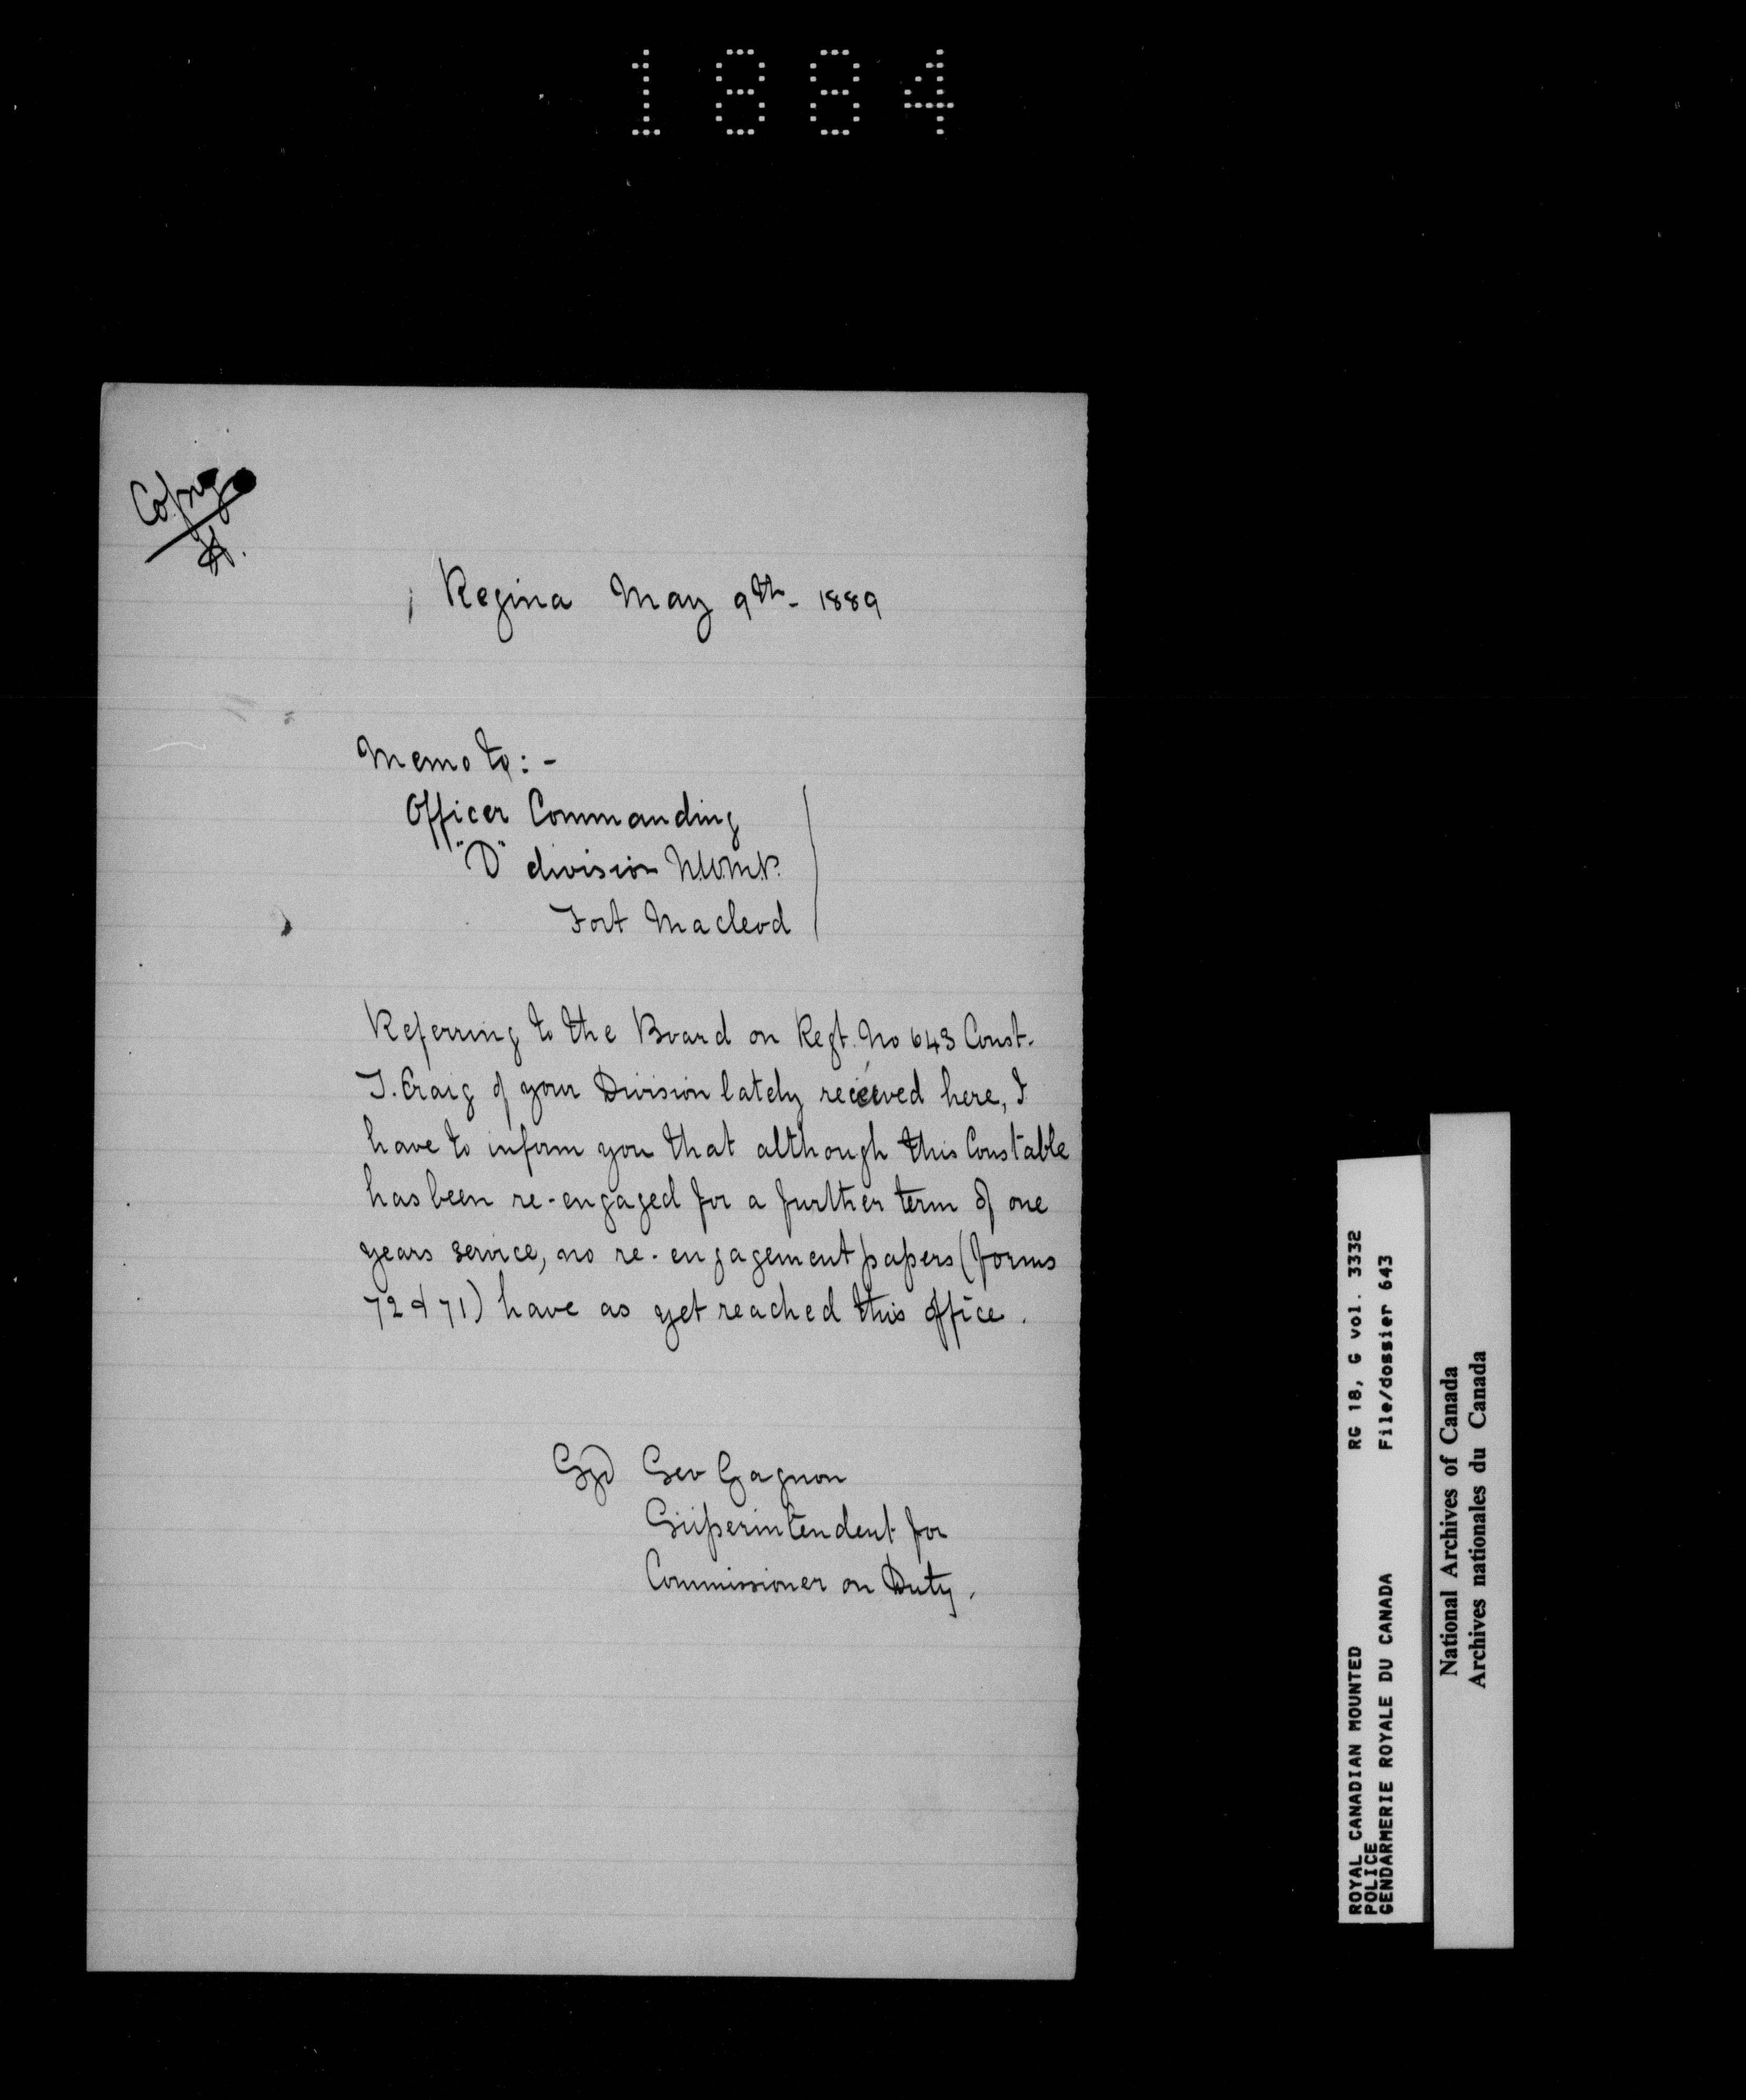 1884
Copy
Regina May 9th - 1889
Memo to : -
Officer Commanding
"D" division N.W.M.P.
Fort Macleod
Referring to the Board on Regt. No 643 Const.
J. Craig of your Division lately received here, I
have to inform you that although this Constable
has been re-engaged for a further term of one
years service, no re-engagement papers (forms
72 & 71) have as yet reached this office.
Sgd Sev Gagnon
Superintendent for
Commissioner on Duty.
ROYAL CANADIAN MOUNTED RG 18, G vol. 3332
POLICE
GENDARMERIE ROYALE DU CANADA File/dossier 643
National Archives of Canada
Archives nationales du Canada